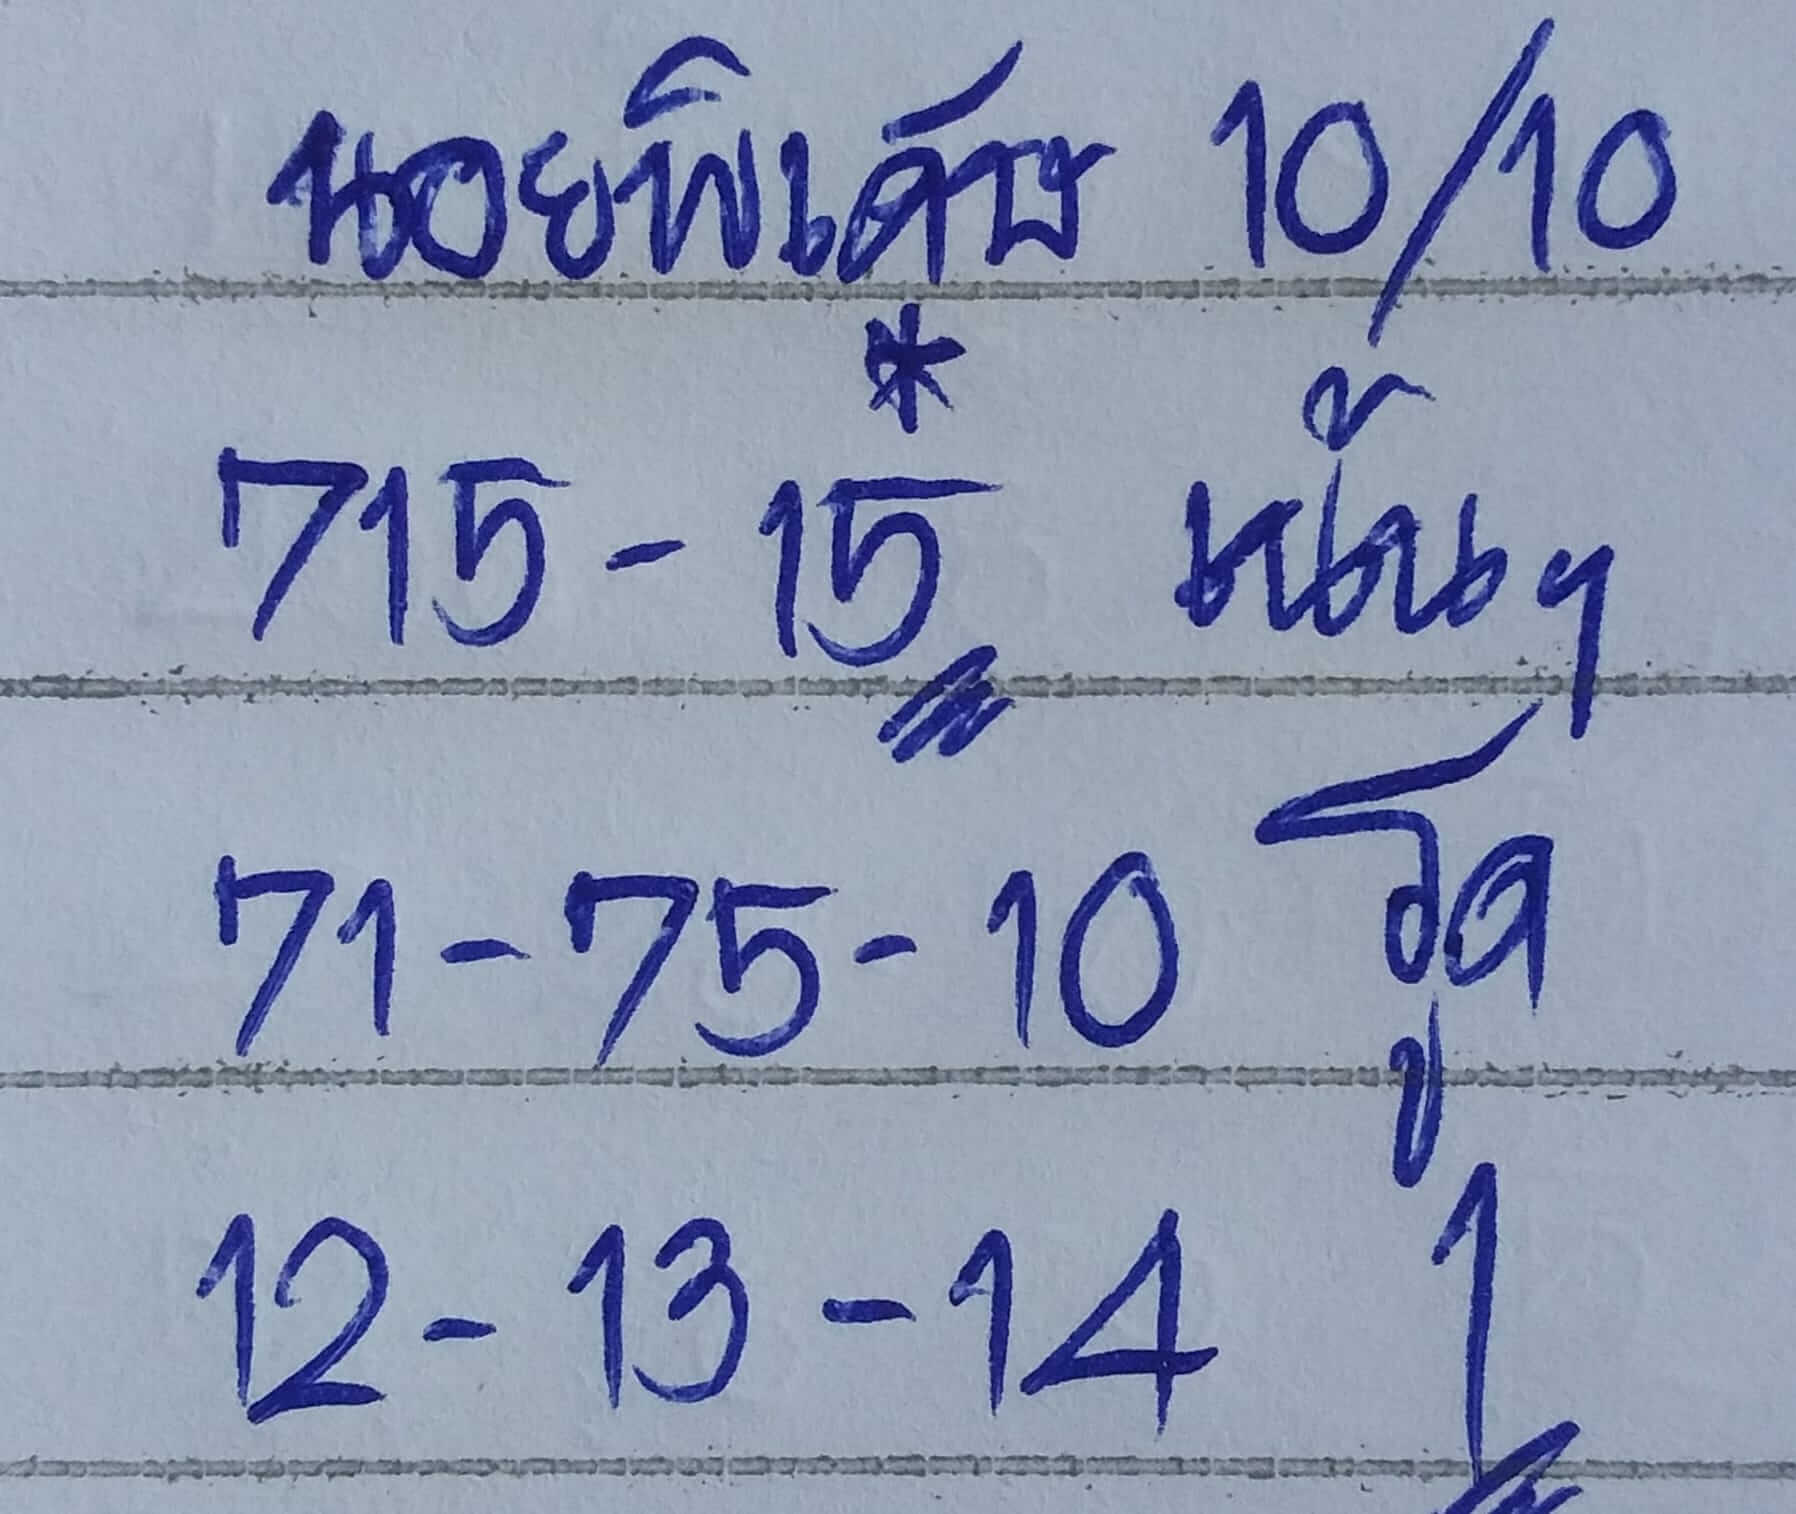 นอยพิเศษ 10/10
*
715 - 15 เน้นๆ
71 - 75 - 10 รูด
12 - 13 - 14 1